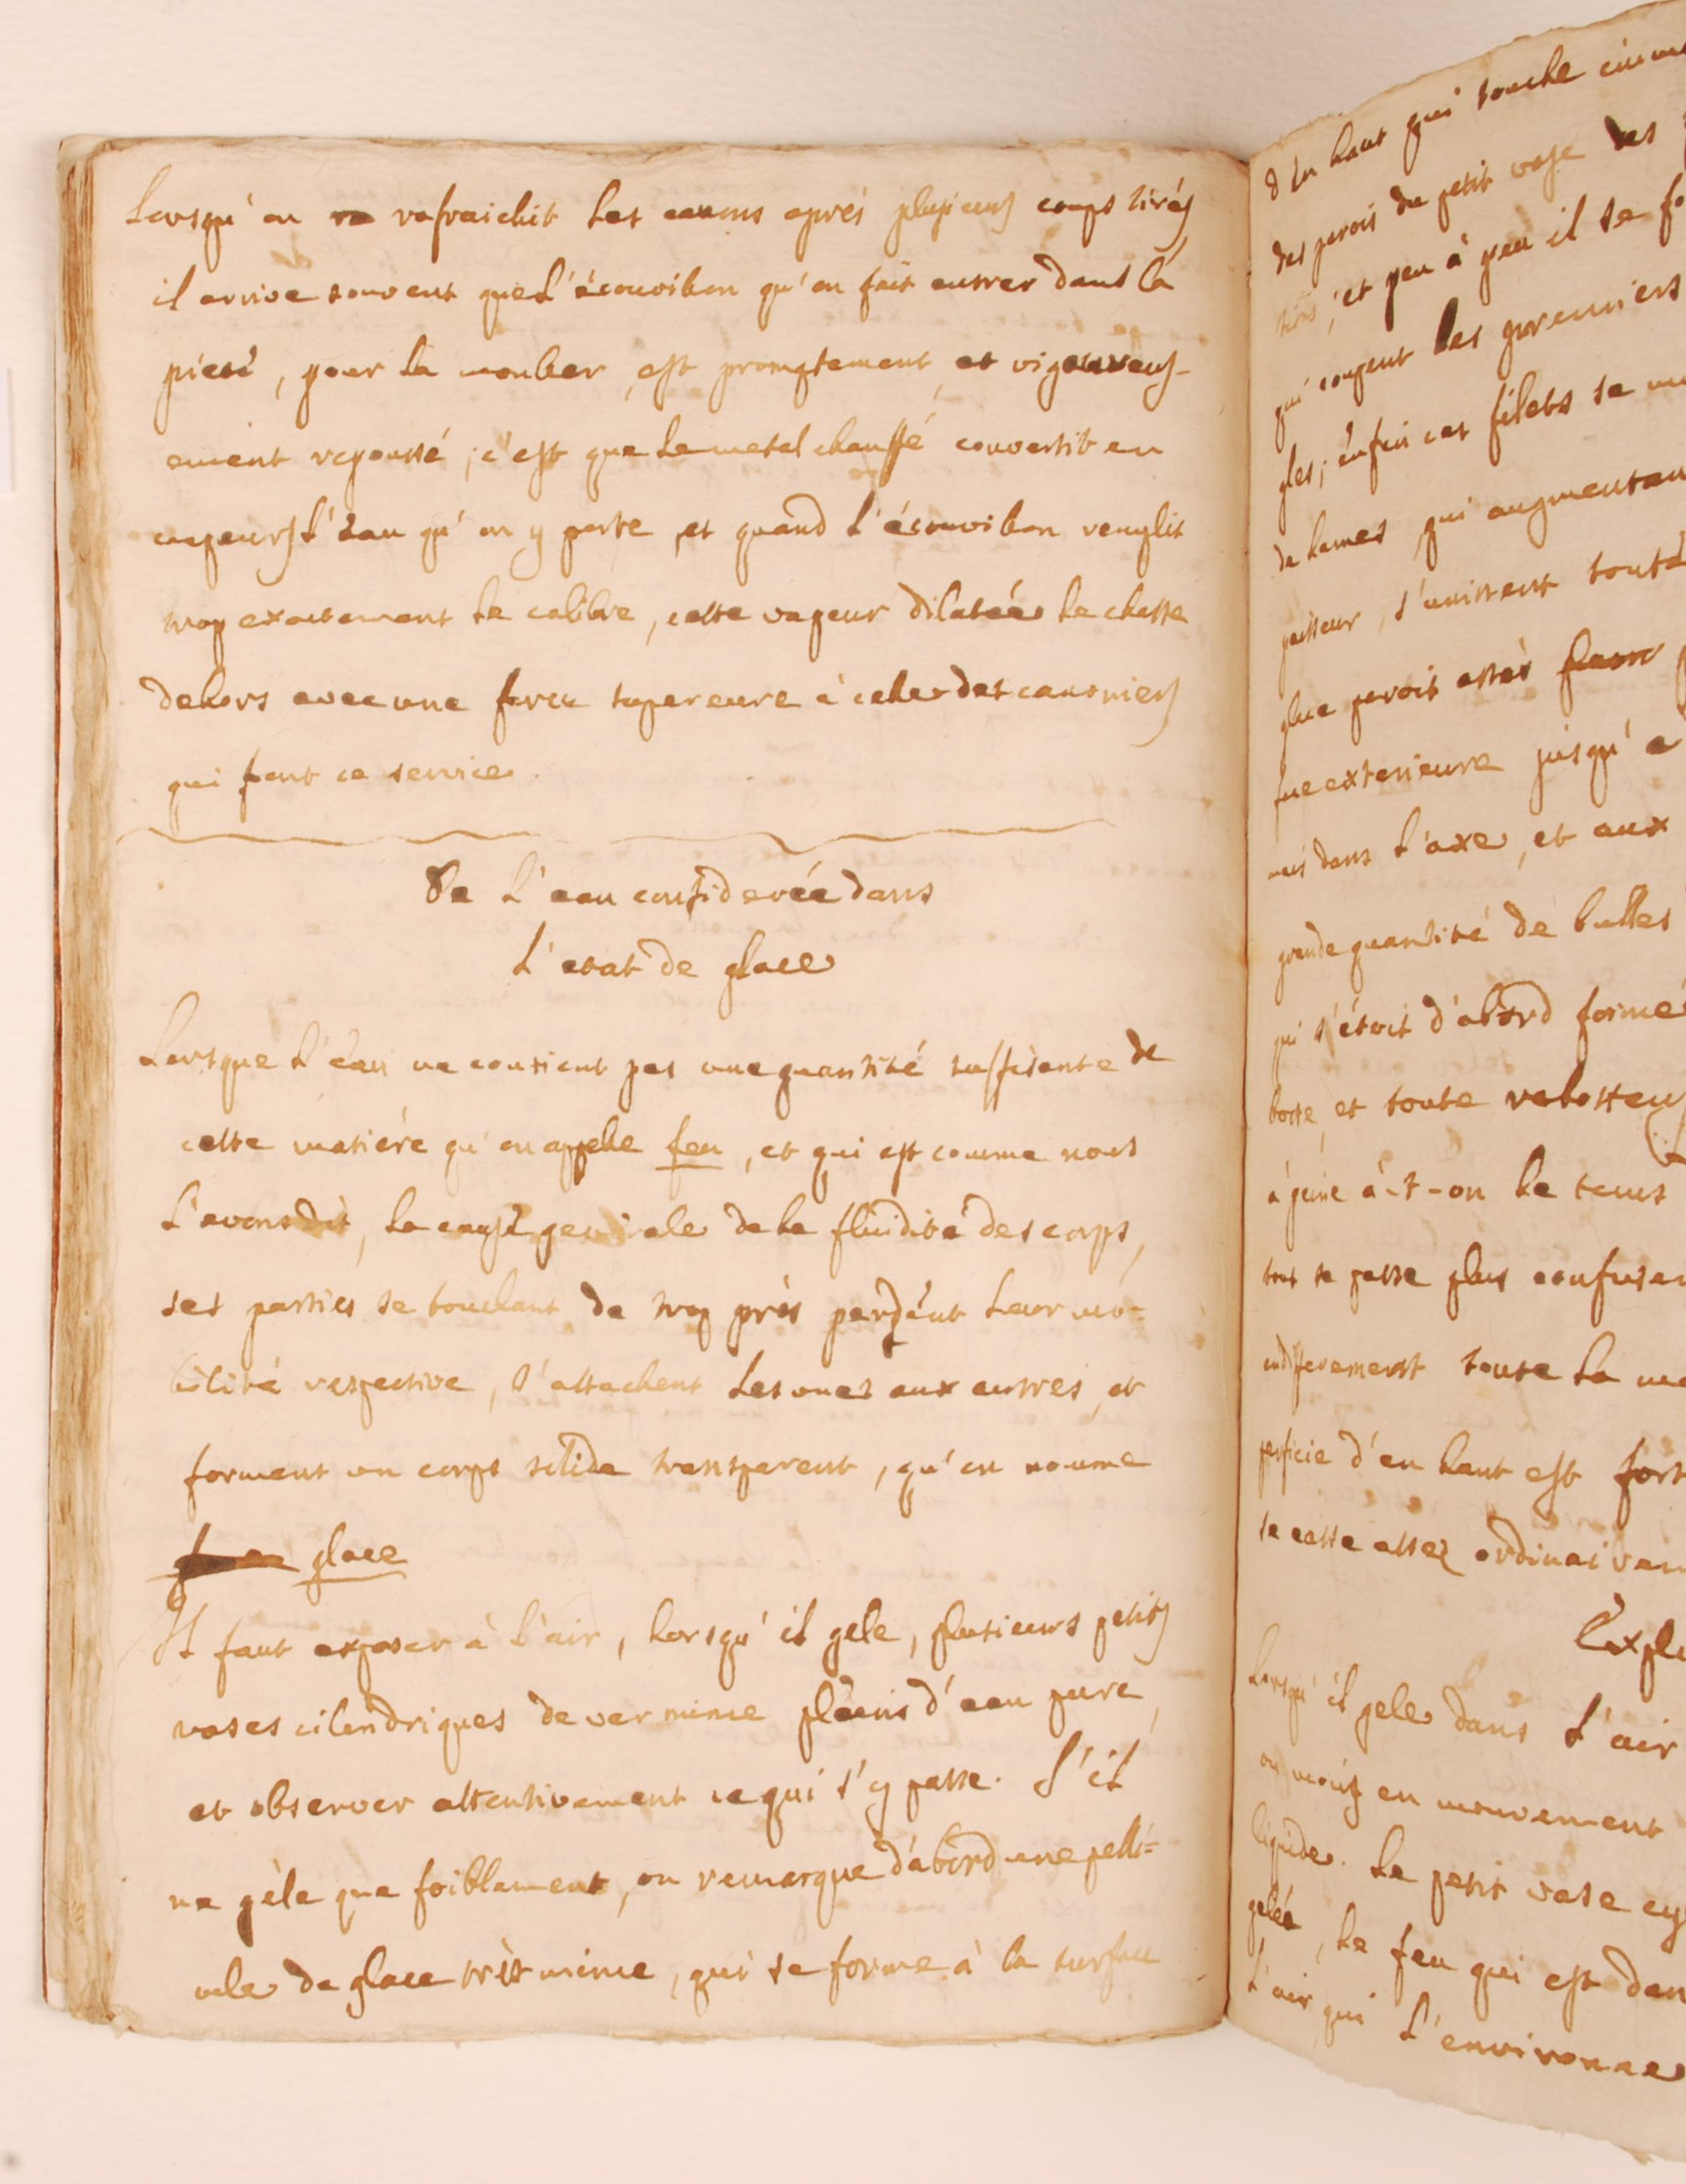 Lorsqu'on rafraichit les canons après plusieurs coups tirés
il arrive souvent que l'écouvillon qu'on fait entrer dans la
piece, pour la mouller, est promptement, et vigoureus-
ement repoussé; c'est que le metal chauffé convertit en
vapeurs l'eau qu'on y porte, et quand l'écouvillon remplit
trop exactement le calibre, cette vapeur dilatée le chasse
dehors avec une force supereure à celle des canoniers
qui font ce service.
De L'eau considerée dans
L'etat de glace
Lorsque l'eau ne contient pas une quantité suffisante de
cette matiére qu'on appelle feu, et qui est comme nous
l'avons dit, la cause generale de la fluidité des corps,
ses parties se touchant de trop près perdent leur mo=
bilité respective, s'attachent les unes aux autres, et
forment un corps solide transparent, qu'on nomme
glace
Il faut exposer à l'air, lorsqu'il gele, plusieurs petits
vases cilendriques de ver mince pleins d'eau pure,
et observer attentivement ce qui s'y passe. S'il
ne gèle que foiblement, on remarque d'abord une pelli=
cule de glace très mince, qui se forme à la surface
d'en haut qui touche
des parois du petit vase des
et peu à peu il se
qui coupent les premiers
gles; enfin ces filets se
de lames, qui augmentan
paisseur, s'unissent toute
glace paroit assès
face exterieure jusqu'a
mais dans l'axe, et aux
grande quantité de bulles
qui s'étoit d'abord formé
bosse, et toute raboteus
à peine à-t-on le tems
tout se passe plus confusem
indifferemment toute la
perficie d'en haut est fort
se casse assez ordinairem
Expli
Lorsqu'il gele dans l'air
ou moins en mouvement
liquide. Le petit vase cy
gelée, le feu qui est dan
l'air qui l'environne